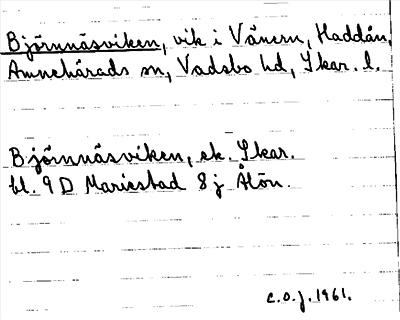 Björnnäsviken, vik i Vänern, Haddån,
Amnehärads sn, Vadsbo hd, Skar. l.
Björnnäsviken, ek. Skar.
bl. 9 D Mariestad 8 j Åtön.
c.o.j. 1961.